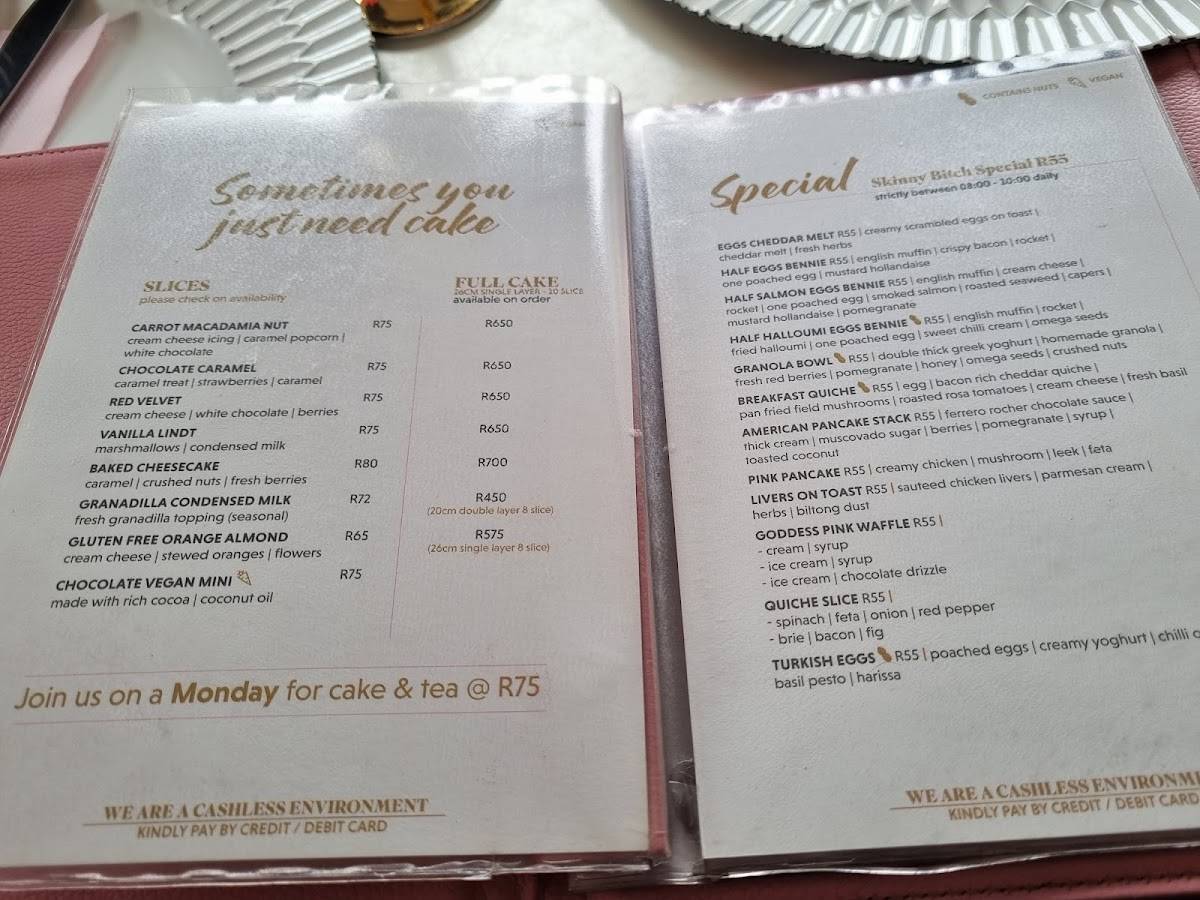 Sometimes you
just need cake
SLICES
please check on availability
FULL CAKE
26CM SINGLE LAYER - 10 SLICE
available on order
CARROT MACADAMIA NUT R75 R650
cream cheese icing | caramel popcorn |
white chocolate
CHOCOLATE CARAMEL R75 R650
caramel treat | strawberries | caramel
RED VELVET R75 R650
cream cheese | white chocolate | berries
VANILLA LINDT R75 R650
marshmallows | condensed milk
BAKED CHEESECAKE R80 R700
caramel | crushed nuts | fresh berries
GRANADILLA CONDENSED MILK R72 R450
fresh granadilla topping (seasonal) (20cm double layer 8 slice)
GLUTEN FREE ORANGE ALMOND R65 R575
cream cheese | stewed oranges | flowers (26cm single layer 8 slice)
CHOCOLATE VEGAN MINI R75
made with rich cocoa | coconut oil
Join us on a Monday for cake & tea @ R75
WE ARE A CASHLESS ENVIRONMENT
KINDLY PAY BY CREDIT / DEBIT CARD
CONTAINS NUTS VEGAN
Special Skinny Bitch Special R55
strictly between 08:00 - 10:00 daily
EGGS CHEDDAR MELT R55 | creamy scrambled eggs on toast |
cheddar melt | fresh herbs
HALF EGGS BENNIE R55 | english muffin | crispy bacon | rocket |
one poached egg | mustard hollandaise
HALF SALMON EGGS BENNIE R55 | english muffin | cream cheese |
rocket | one poached egg | smoked salmon | roasted seaweed | capers |
mustard hollandaise | pomegranate
HALF HALLOUMI EGGS BENNIE R55 | english muffin | rocket |
fried halloumi | one poached egg | sweet chilli cream | omega seeds
GRANOLA BOWL R55 | double thick greek yoghurt | homemade granola |
fresh red berries | pomegranate | honey | omega seeds | crushed nuts
BREAKFAST QUICHE R55 | egg | bacon rich cheddar quiche |
pan fried field mushrooms | roasted rosa tomatoes | cream cheese | fresh basil
AMERICAN PANCAKE STACK R55 | ferrero rocher chocolate sauce |
thick cream | muscovado sugar | berries | pomegranate | syrup |
toasted coconut
PINK PANCAKE R55 | creamy chicken | mushroom | leek | feta
LIVERS ON TOAST R55 | sauteed chicken livers | parmesan cream |
herbs | biltong dust
GODDESS PINK WAFFLE R55 |
- cream | syrup
- ice cream | syrup
- ice cream | chocolate drizzle
QUICHE SLICE R55 |
- spinach | feta | onion | red pepper
- brie | bacon | fig
TURKISH EGGS R55 | poached eggs | creamy yoghurt | chilli
basil pesto | harissa
WE ARE A CASHLESS ENVIRONM
KINDLY PAY BY CREDIT / DEBIT CARD